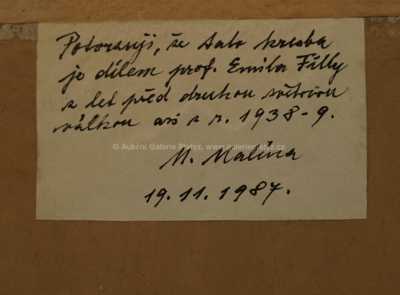 Potvrzuji, že tato kresba
je dílem prof. Emila Filly
z let před druhou světovou
válkou asi z r. 1938-9.
M. Malina
19.11.1987.
© Aukční Galerie Platýz, www.galerieplatyz.cz